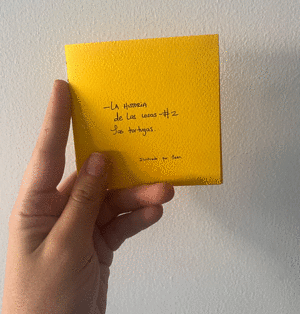 - LA HISTORIA
de las cosas - #2
Las tortugas.
Ilustrado por